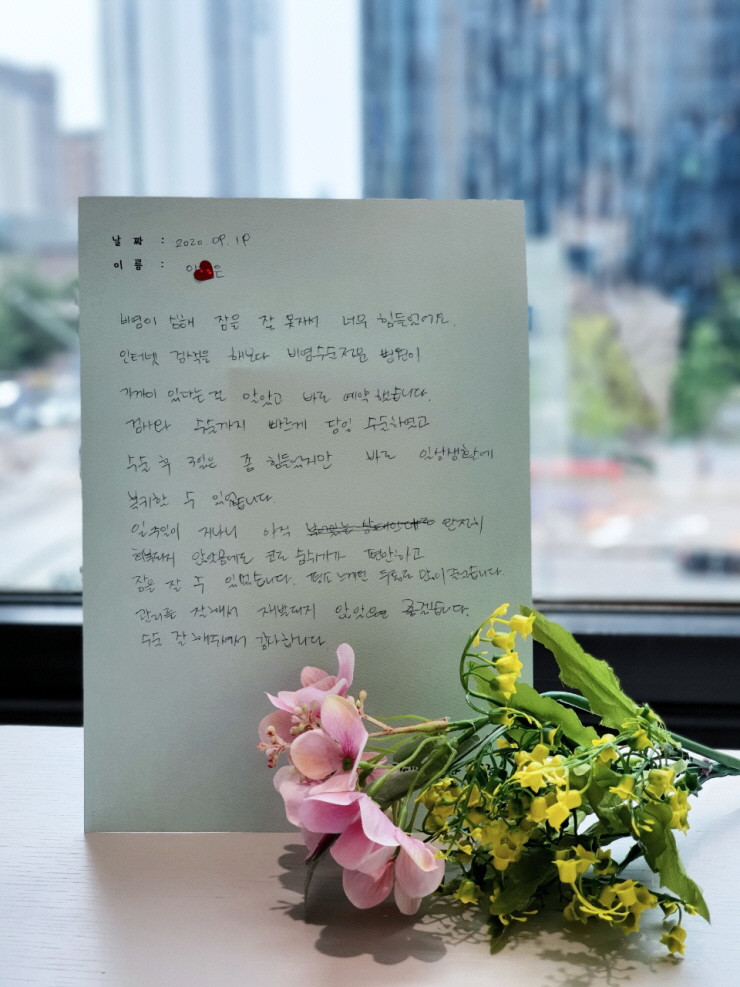 날 짜 : 2020. 09. 19
이 름 : 이 은
비염이 심해 잠을 잘 못자서 너무 힘들었어요.
인터넷 검색을 해보다 비염수술전문 병원이
가까이 있다는 걸 알았고 바로 예약했습니다.
검사와 수술까지 빠르게 당일 수술하였고
수술 후 3일은 좀 힘들었지만 바로 일상생활에
복귀할 수 있었습니다.
일주일이 지나니 아직 완전히
회복되지 않았음에도 코로 숨쉬기가 편안하고
잠을 잘 수 있었습니다. 평소 느끼던 두통도 많이
관리를 잘해서 재발되지 않았으면 좋겠습니다.
수술 잘 해주셔서 감사합니다